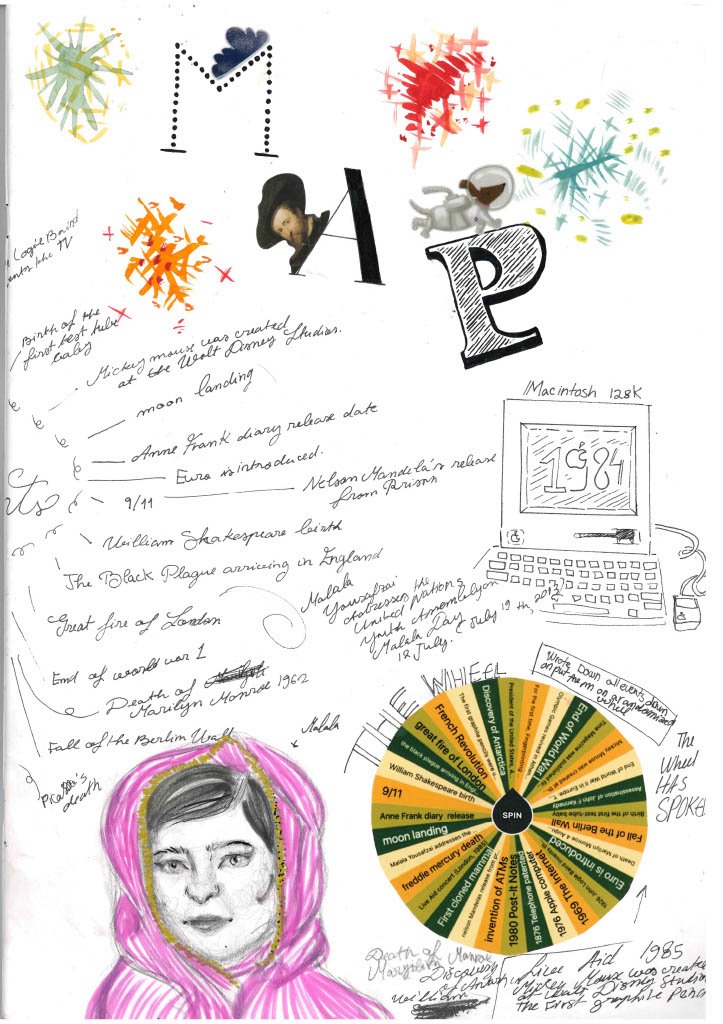 M
A
P
Logie Baird
the TV
Birth of the
first test tube
baby
Mickey mouse was created
at the Walt Disney Studios.
moon landing
Anne Frank diary release date
Euro is introduced.
9/11
Nelson Mandela's release
from Prison
William Shakespeare birth
The Black Plague arriveing in England
Great fire of London
End of world war 1
Death of
Marilyn Monroe 1962
Fall of the Berlin Wall
Picasso's
death
Malala
Macintosh 128K
1984
Malala
Yousafzai
addresses the
United Nations
Youth Assembly on
Malala Day
12 July.
THE WHEEL
Wrote Down all events down
an put them on a randomized
wheel
The
Wheel
HAS
SPOKE
SPIN
President of the United States, A
For the first time, Fingerprinting
Olympic Games revived in Athen
End of World War
Time Magazine was published
Mickey Mouse was created at th
End of World War in Europe
Assassination of John F Kennedy
Birth of the first-tube baby
Fall of the Berlin Wall
Death of Marilyn Monroe 4 Augu
Euro is introduced
1926, John Logie Baird
1969 The internet
1976 Apple computer
1876 Telephone patented
1980 Post-It Notes
invention of ATMs
nelson Mandela's release from
First cloned mammal
Live Aid concert (London, 1985)
freddie mercury death
Malala Yousafzai addresses the
moon landing
Anne Frank diary release
9/11
William Shakespeare birth
the black plague arriving in Engl
great fire of London
French Revolution
The first graphite pencils were
Discovery of Antarctica
Death of Monroe
Discovery
of
William
Live Aid 1985
Mickey Mouse was created
at Walt Disney Studios
The First graphite